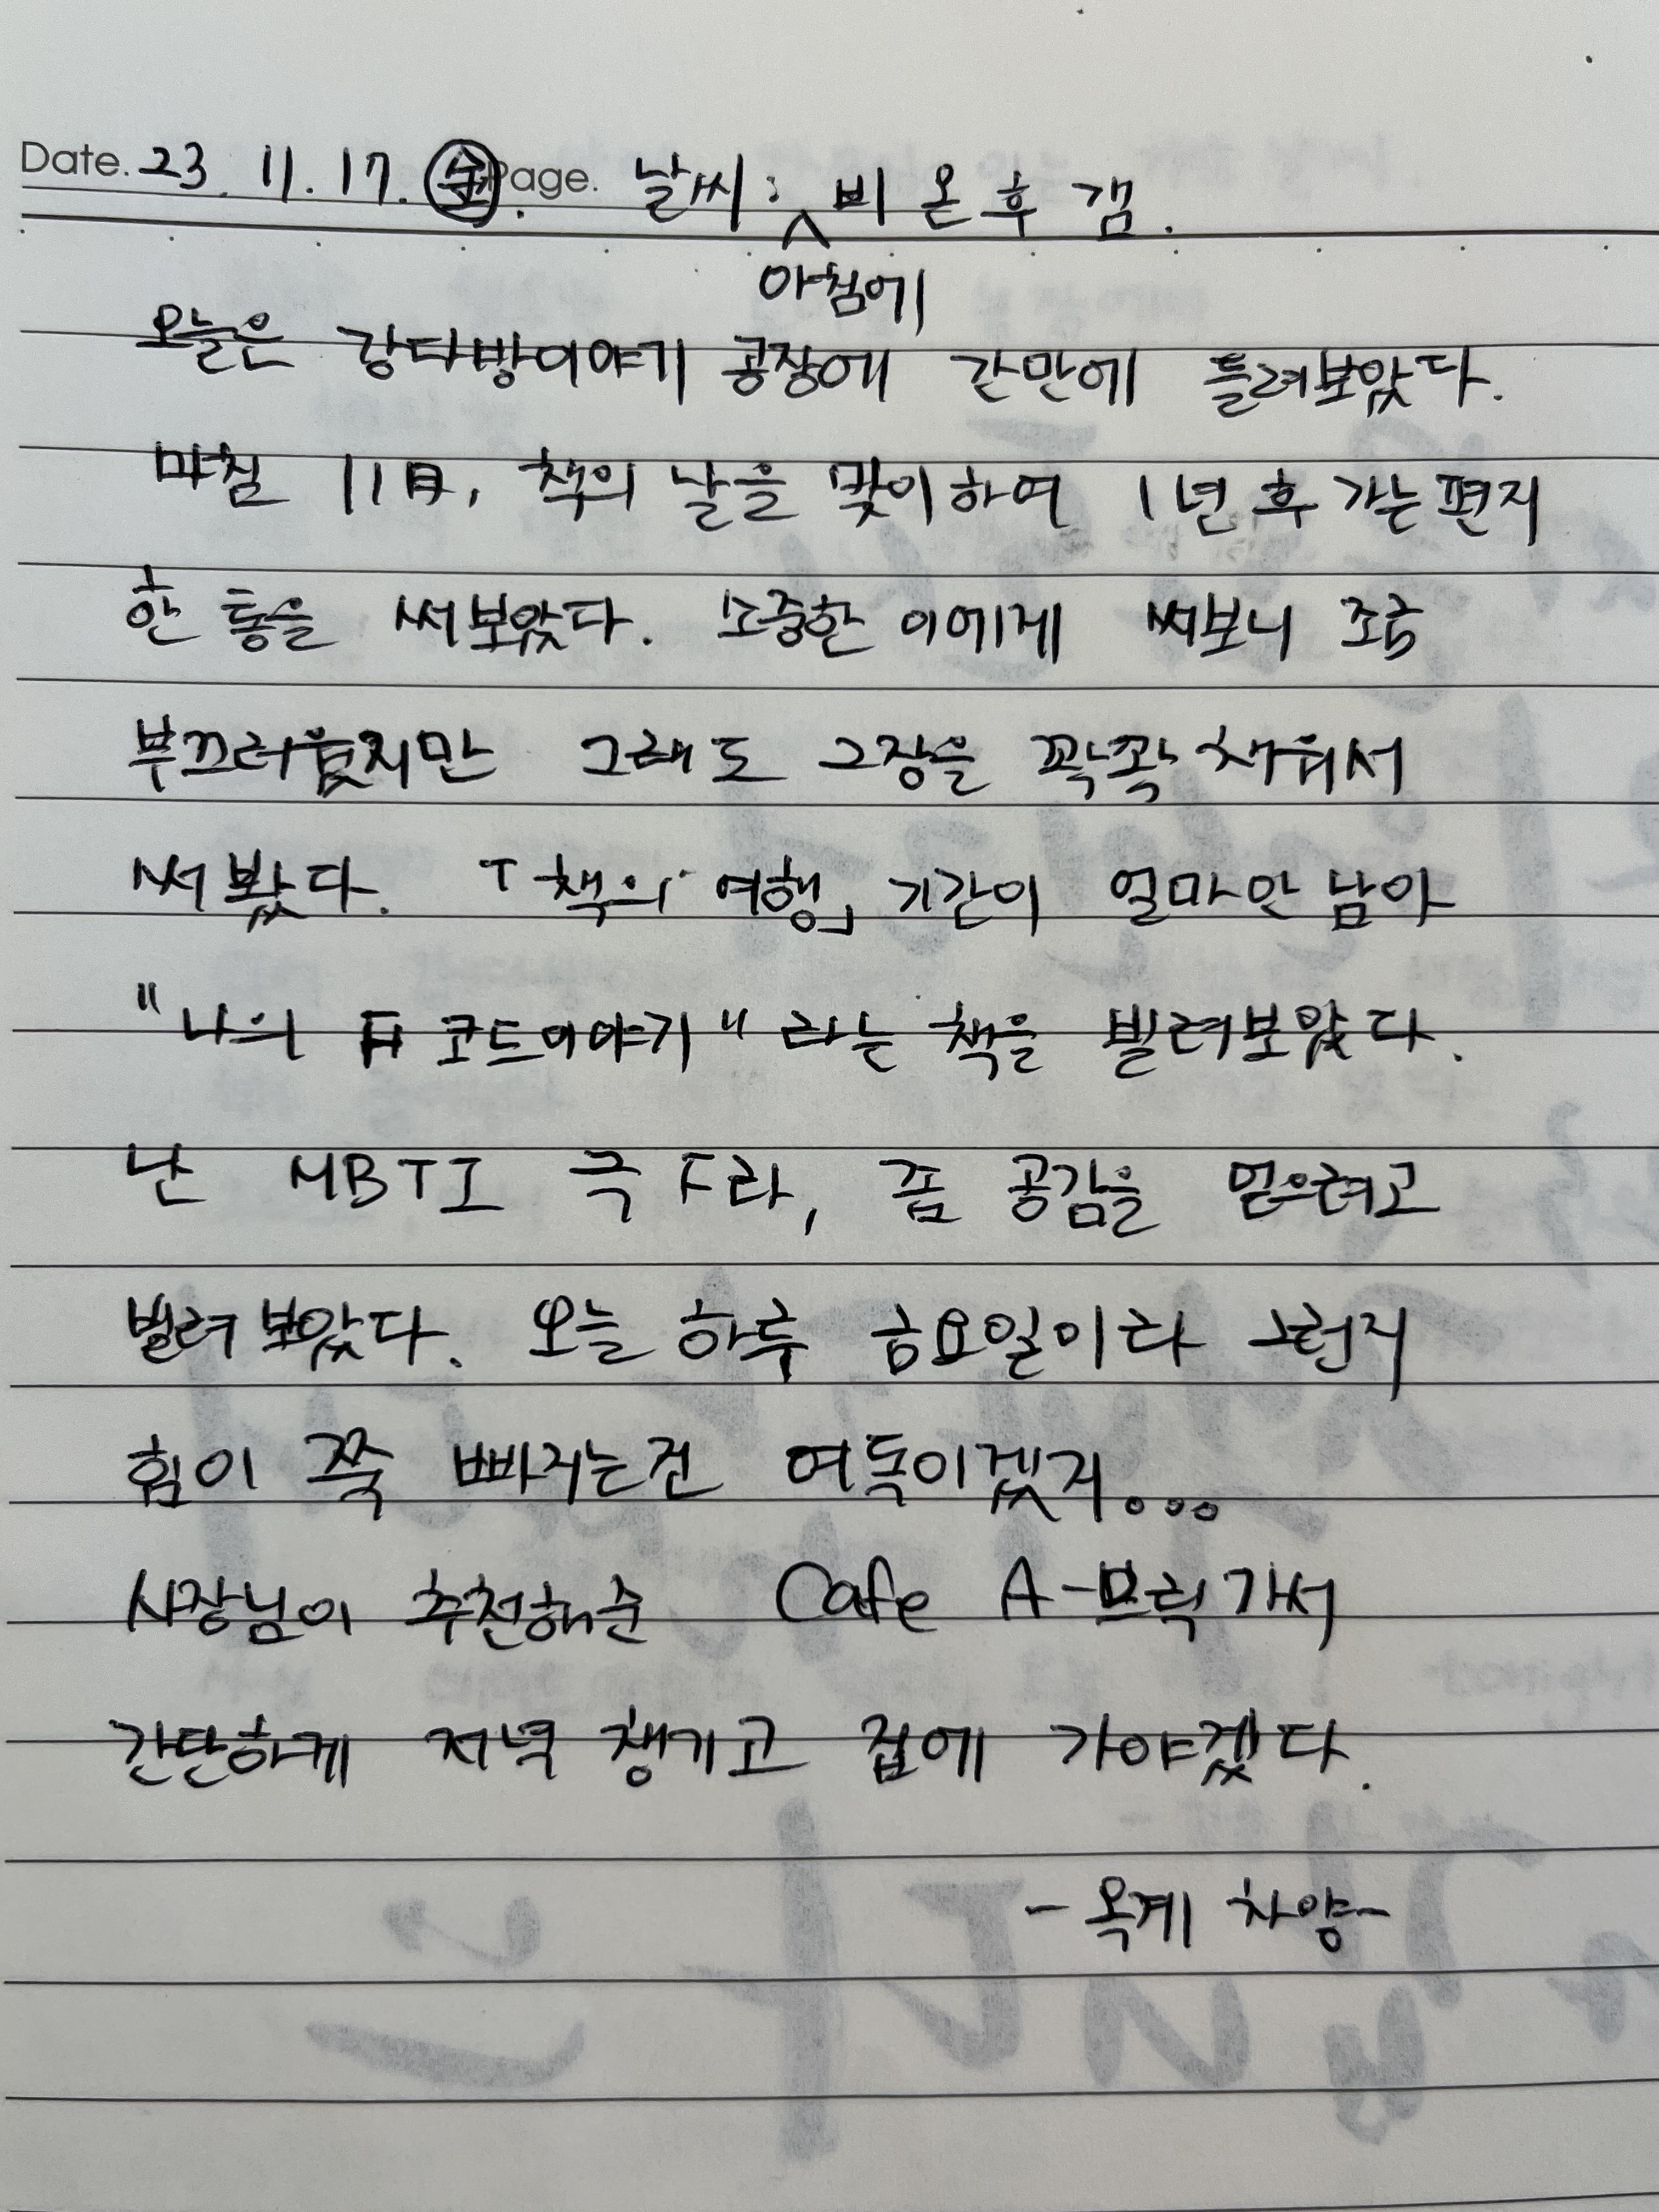 Date. 23. 11. 17. 金. Page. 날씨: 비 온 후 갬.
아침에
오늘은 강다방이야기 공장에 간만에 들려보았다.
마침 11月, 책의 날을 맞이하여 1년 후 가는 편지
한 통을 써보았다. 소중한 이에게 써보니 조금
부끄러웠지만 그래도 2장을 꽉꽉 채워서
써봤다. 「책의 여행」 기간이 얼마 안 남아
"나의 F코드이야기" 라는 책을 빌려보았다.
난 MBTI 극 F라, 좀 공감을 얻으려고
빌려보았다. 오늘 하루 금요일이라 그런지
힘이 쭉 빠지는건 여독이겠지...
사장님이 추천해준 Cafe A-브릭 가서
간단하게 저녁 챙기고 집에 가야겠다.
- 옥계 차양-